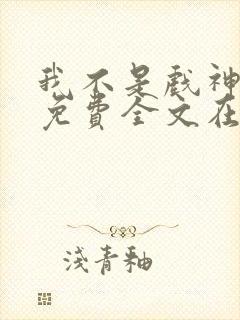 我不是戲神
免費全文在
淺青釉